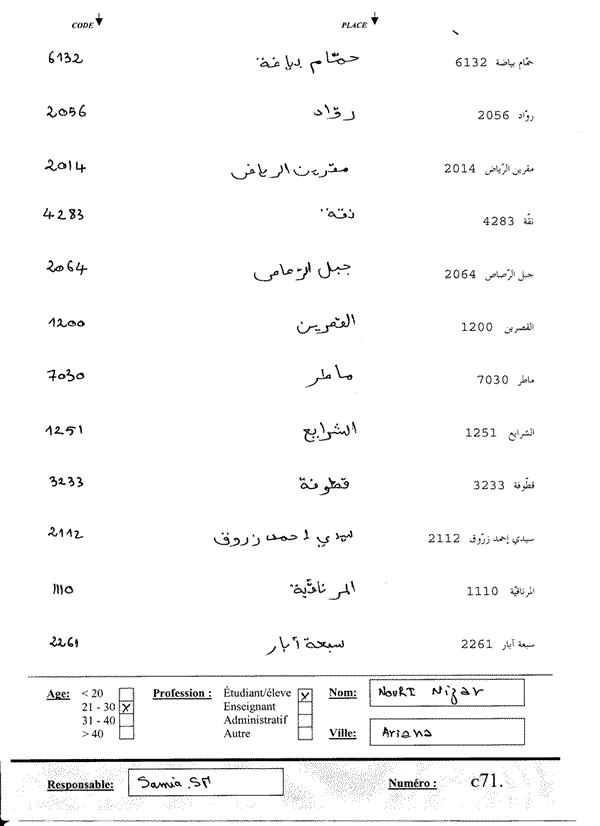 CODE PLACE
6132 حمّام بياضة حمّام بياضة 6132
2056 روّاد روّاد 2056
2014 مقرين الرياض مقرين الرّياض 2014
4283 نقّة نقّة 4283
2064 جبل الرّصاص جبل الرّصاص 2064
1200 القصرين القصرين 1200
7030 ماطر ماطر 7030
1251 الشرايع الشرايع 1251
3233 قطوفة قطّوفة 3233
2112 سيدي احمد زروق سيدي إحمد زرّوق 2112
1110 المرناقيّة المرناقيّة 1110
2261 سبعة آبار سبعة آبار 2261
Age: < 20 Profession : Étudiant/éleve x Nom: NOURI Nizar
21 - 30 x Enseignant
31 - 40 Administratif
> 40 Autre Ville: Ariana
Responsable: Samia.SM Numéro : c71.